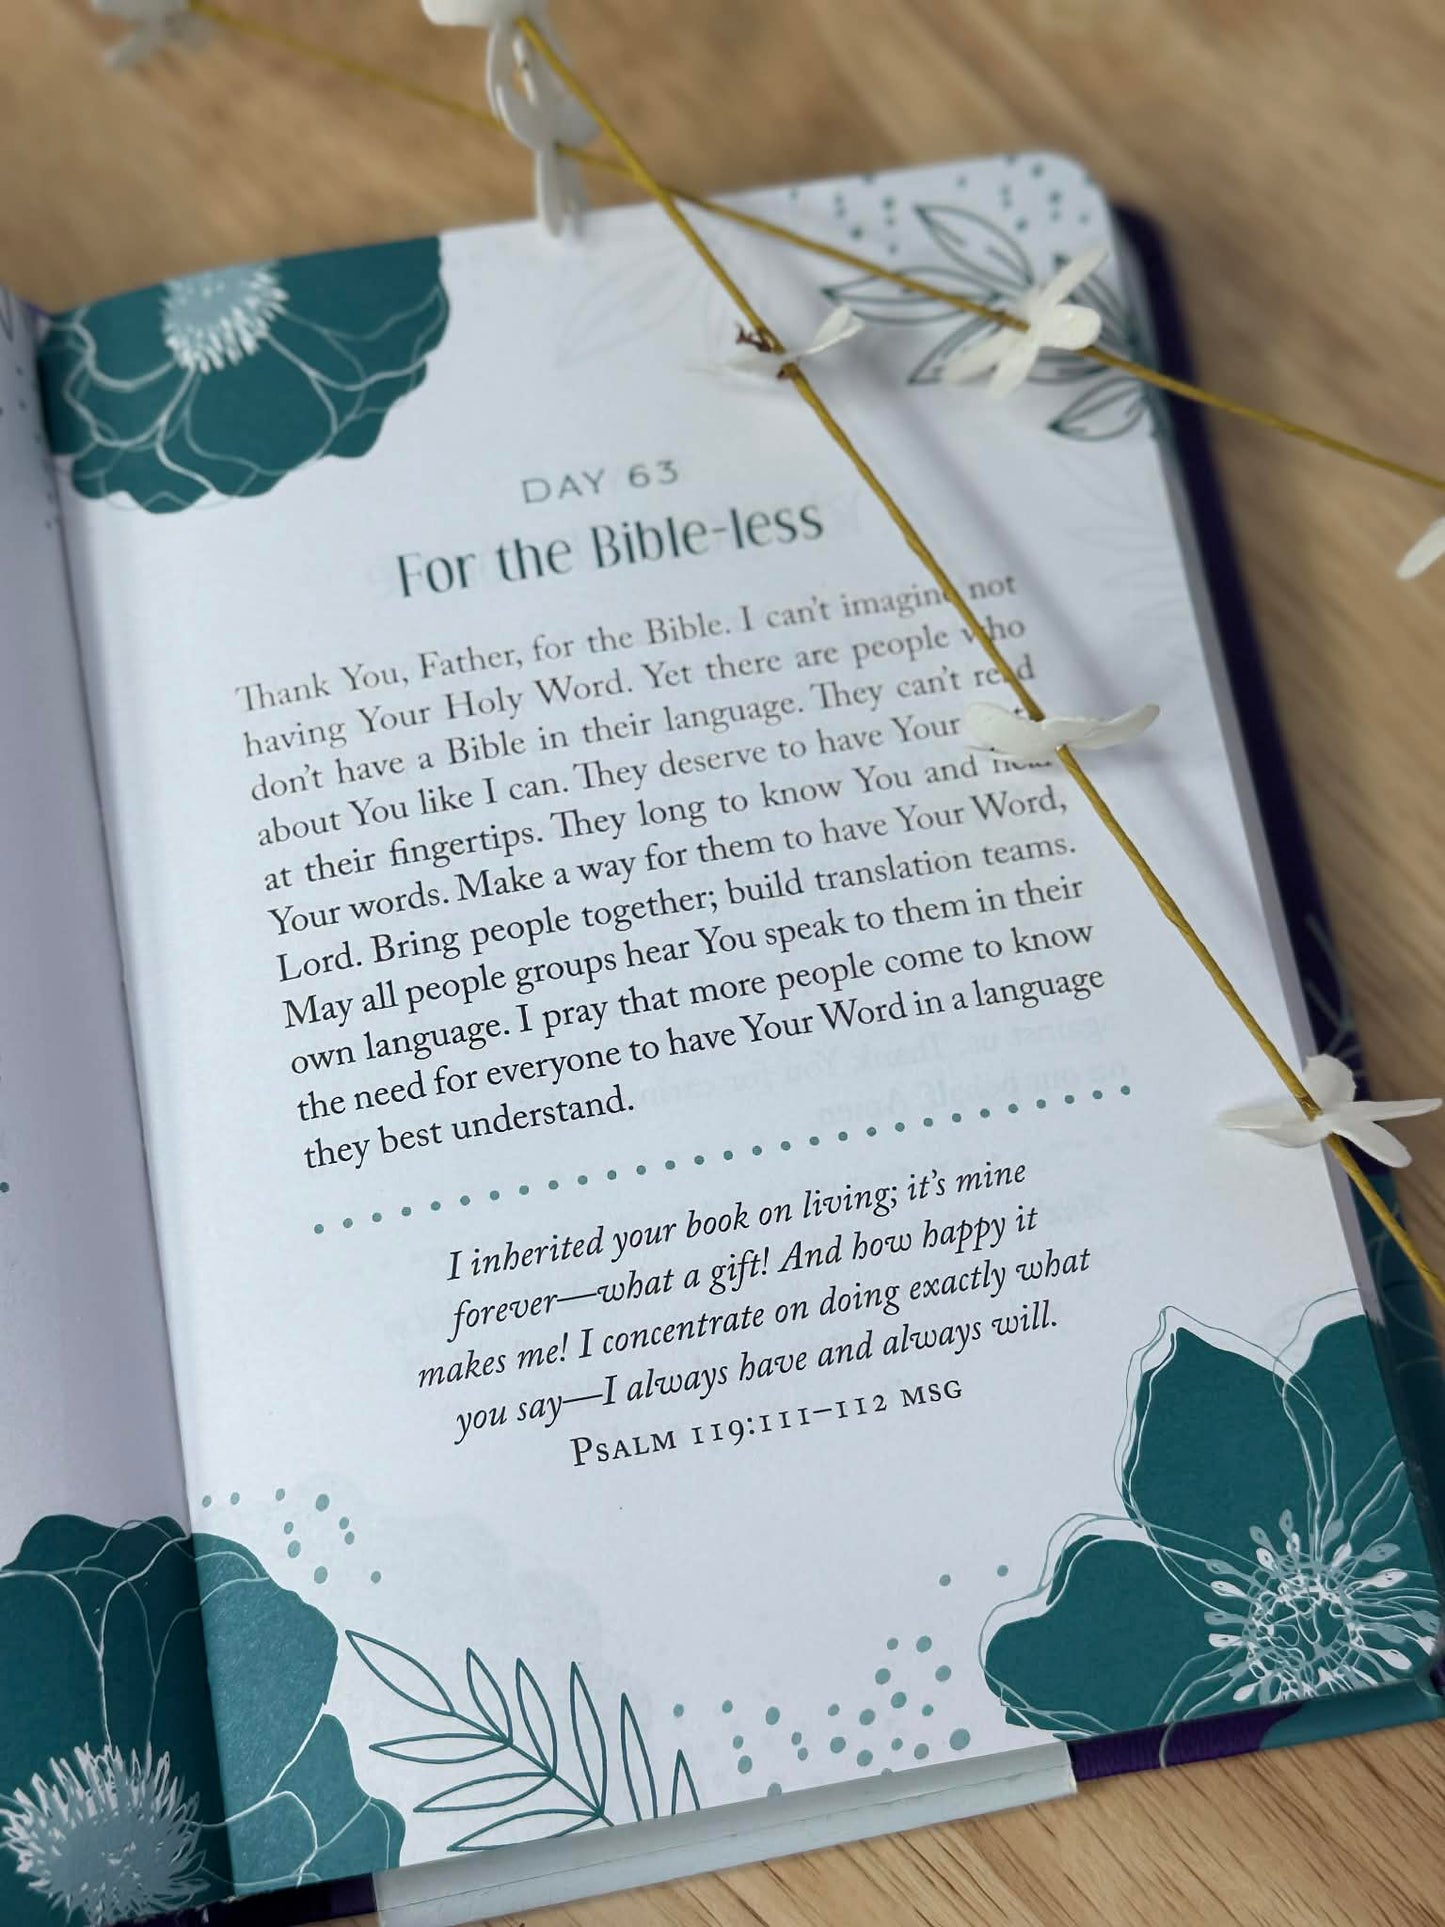 DAY 63
For the Bible-less
Thank You, Father, for the Bible. I can't imagine not
having Your Holy Word. Yet there are people who
don't have a Bible in their language. They can't read
about You like I can. They deserve to have Your
at their fingertips. They long to know You and
Your words. Make a way for them to have Your Word,
Lord. Bring people together; build translation teams.
May all people groups hear You speak to them in their
own language. I pray that more people come to know
the need for everyone to have Your Word in a language
they best understand.
I inherited your book on living; it's mine
forever—what a gift! And how happy it
makes me! I concentrate on doing exactly what
you say—I always have and always will.
Psalm 119:111–112 MSG